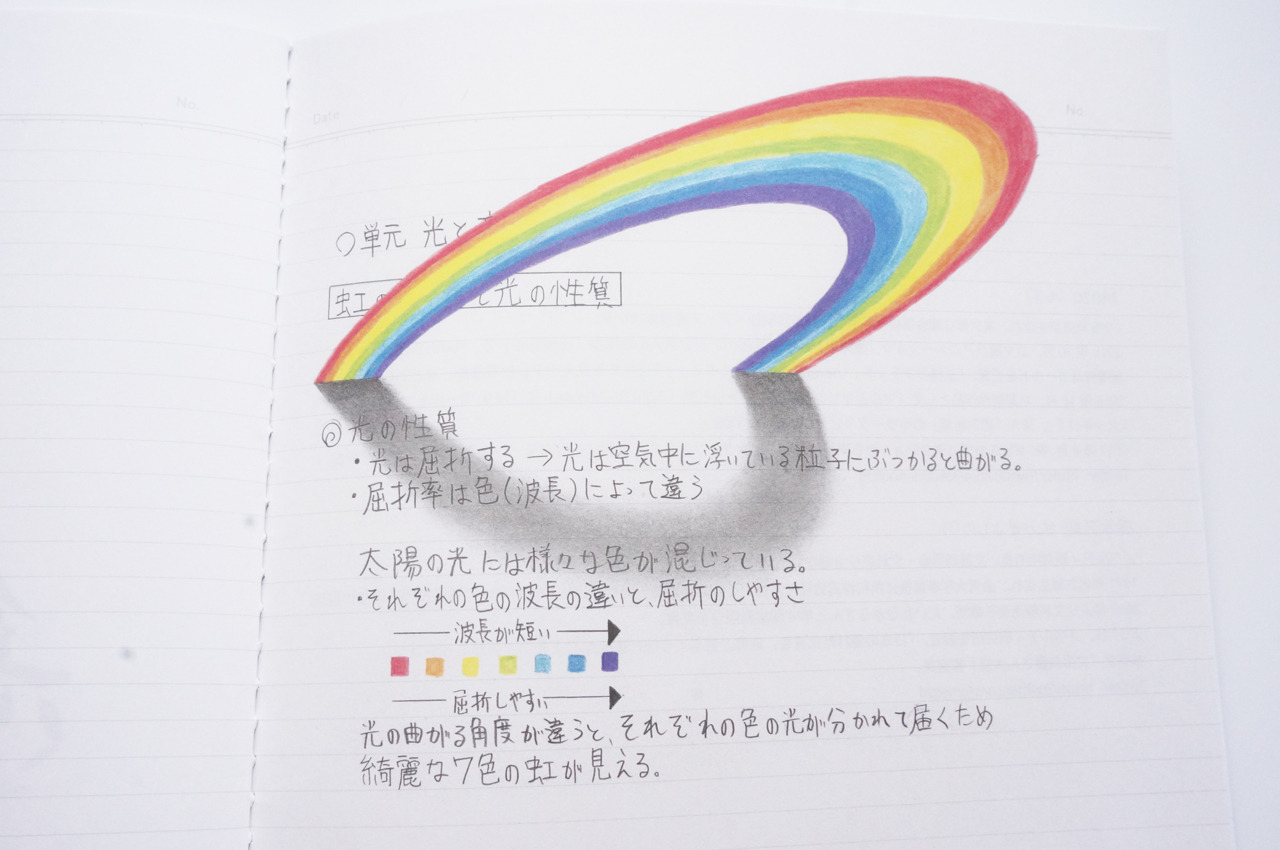 No.
Date
No.
○単元 光と
虹の と光の性質
◎光の性質
・光は屈折する → 光は空気中に浮いている粒子にぶつかると曲がる。
・屈折率は色(波長)によって違う
太陽の光には様々な色が混じっている。
・それぞれの色の波長の違いと、屈折のしやすさ
波長が短い →
屈折しやすい →
光の曲がる角度が違うと、それぞれの色の光が分かれて届くため
綺麗な7色の虹が見える。